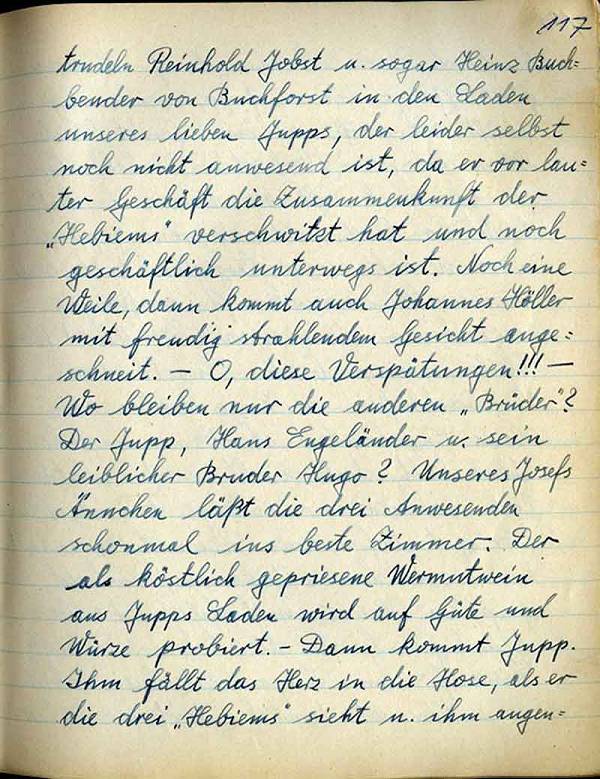 117
trudeln Reinhold Jobst u. sogar Heinz Buch=
bender von Buchforst in den Laden
unseres lieben Jupps, der leider selbst
noch nicht anwesend ist, da er vor lau=
ter Geschäft die Zusammenkunft der
„Hebiems" verschwitzt hat und noch
geschäftlich unterwegs ist. Noch eine
Weile, dann kommt auch Johannes Höller
mit freudig strahlendem Gesicht ange=
schneit. — O, diese Verspätungen!!! —
Wo bleiben nur die anderen „Brüder"?
Der Jupp, Hans Engeländer u. sein
leiblicher Bruder Hugo? Unseres Josefs
Ännchen läßt die drei Anwesenden
schonmal ins beste Zimmer. Der
als köstlich gepriesene Wermutwein
aus Jupps Laden wird auf Güte und
Würze probiert. - Dann kommt Jupp.
Ihm fällt das Herz in die Hose, als er
die drei „Hebiems" sieht u. ihm augen=